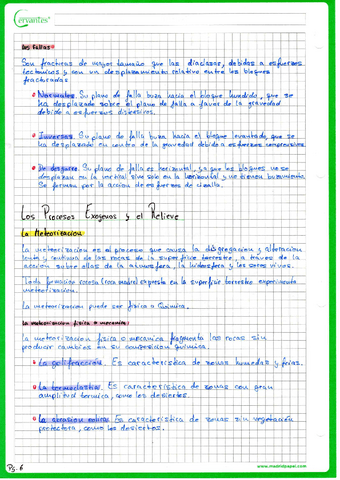 Cervantes
Las fallas:
Son fracturas de mayor tamaño que las diaclasas, debidas a esfuerzos
tectonicos y con un desplazamiento relativo entre los bloques
fracturados
• Normales. Su plano de falla buza hacia el bloque hundido, que se
ha desplazado sobre el plano de falla a favor de la gravedad
debido a esfuerzos distensivos.
• Inversas. Su plano de falla buza hacia el bloque levantado, que se
ha desplazado en contra de la gravedad debido a esfuerzos compresivos
• De desgarre. Su plano de falla es horizontal, ya que los bloques no se
desplazan en la vertical sino solo en la horizontal y no tienen buzamiento.
Se forman por la accion de esfuerzos de cizalla.
Los Procesos Exogenos y el Relieve
La Meteorizacion
La meteorizacion es el proceso que causa la disgregacion y alteracion
lenta y continua de las rocas de la superficie terrestre, a traves de la
accion sobre ellas de la atmosfera, la hidrosfera y los seres vivos.
Toda formacion rocosa (roca madre) expuesta en la superficie terrestre experimenta
meteorizacion.
La meteorizacion puede ser fisica o Quimica.
La meteorizacion fisica o mecanica
La meteorizacion fisica o mecanica fragmenta las rocas sin
producir cambios en su composicion quimica.
• La gelifraccion. Es caracteristica de zonas humedas y frias.
• La termoclastia. Es caracteristica de zonas con gran
amplitud termica, como los desiertos.
• La abrasion eolica. Es caracteristica de zonas sin vegetacion
protectora, como los desiertos.
Pg. 6
www.madridpapel.com